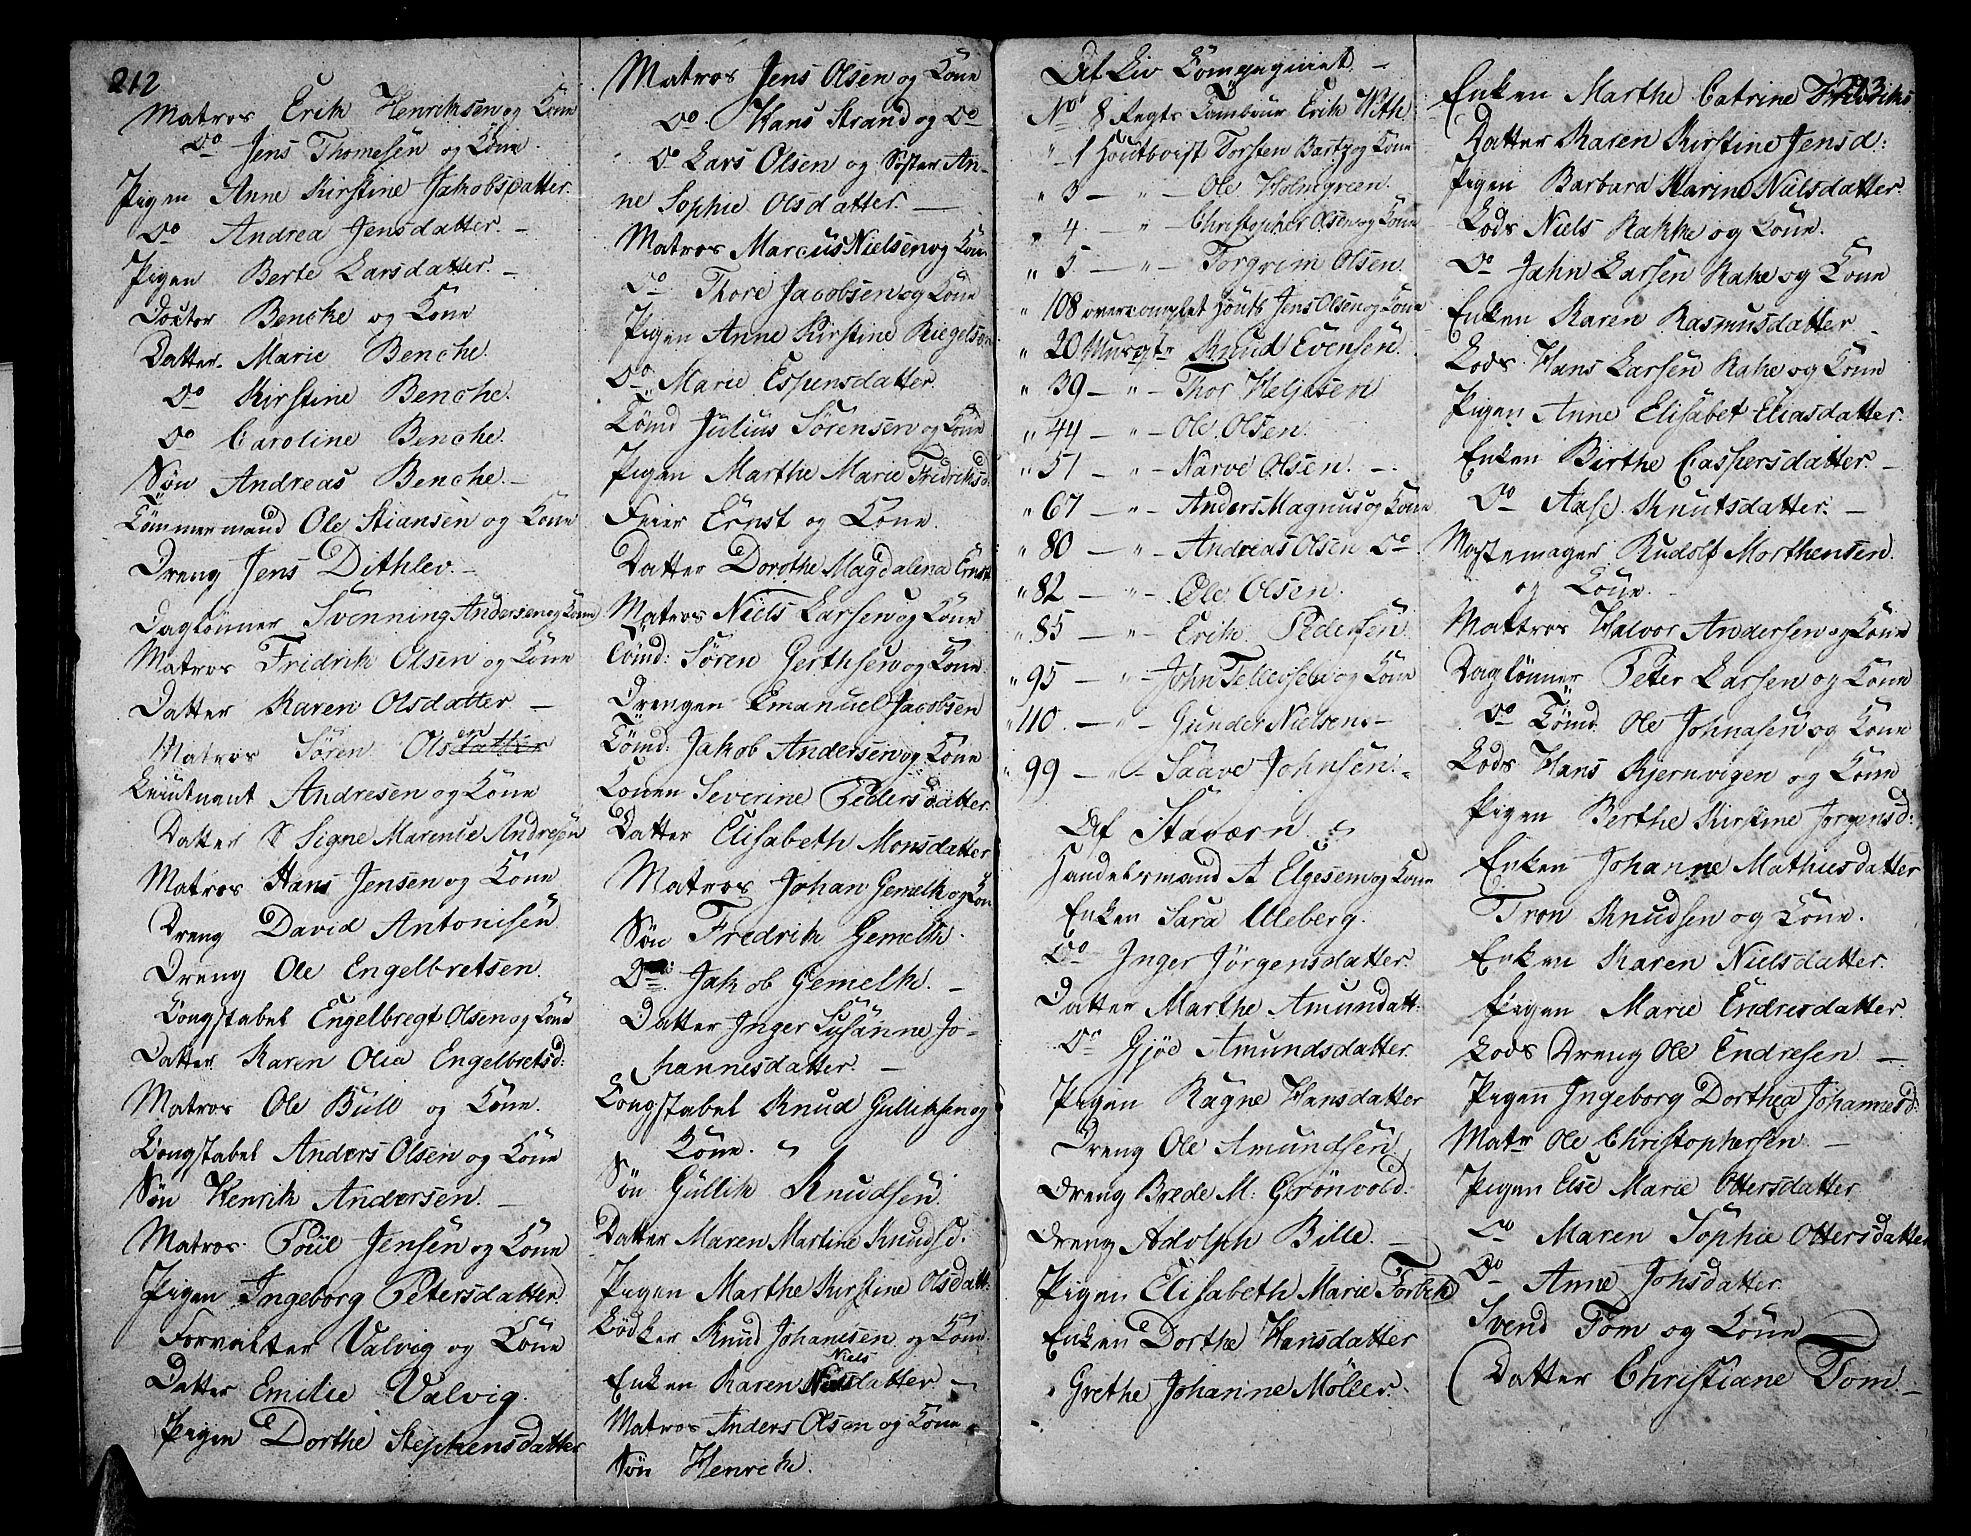 212
Matros Erik Henriksen og Kone
Do Jens Thomesen og Kone
Pigen Anne Kirstine Jakobsdatter
Do Andrea Jensdatter. —
Pigen Berte Larsdatter. —
Doctor Benche og Kone
Datter. Marie Benche.
Do Kirstine Benche.
Do Caroline Benche.
Søn Andreas Benche. —
Tømmermand Ole Stiansen og Kone
Dreng Jens Dithlev. —
Daglønner Svenning Andersen og Kone
Matros Fridrik Olsen og Kone
Datter Karen Olsdatter —
Matros Søren Olsen
Leiutnant Andresen og Kone
Datter Signe Marenie Andresen
Matros Hans Jensen og Kone
Dreng David Antonisen
Dreng Ole Engelbretsen.
Kongstabel Engelbregt Olsen og Kone
Datter Karen Olia Engelbretsd:
Matros Ole Bull og Kone.
Kongstabel Anders Olsen og Kone
Søn Henrik Andersen. —
Matros Poul Jensen og Kone
Pigen Ingeborg Petersdatter.
Forvalter Valvig og Kone
Datter Emilie Valvig.
Pigen Dorthe Stephensdatter
Matros Jens Olsen og Kone
Do Hans Strand og Do
Do Lars Olsen og Søster An-
ne Sophie Olsdatter. —
Matros Marcus Nielsen og Kone
Do Thore Jacobsen og Kone
Pigen Anne Kirstine Riegelsen
Do Marie Espensdatter.
Tømd Julius Sørensen og Kone
Pigen Marthe Marie Fredriksd.
Feier Ernst og Kone.
Datter Dorothe Magdalena Ernst
Matros Niels Larsen og Kone
Tømd: Søren Gerthsen og Kone
Drengen Emanuel Jacobsen
Tømd: Jakob Andersen og Kone
Konen Severine Pedersdatter
Datter Elisabeth Monsdatter
Matros Johan Gemelk og Kon
Søn Fredrik Gemelk.
Do: Jakob Gemelk. —
Datter Inger Susanne Jo-
hannesdatter. —
Kongstabel Knud Gulliksen og
Kone. "
Søn Gullik Knudsen.
Datter Maren Martine Knudsd.
Pigen Marthe Kirstine Olsdatt:
Bødker Knud Johanesen og Kone
Niels
Enken Karen datter —
Matros Anders Olsen og Kone
Søn Henrik.
Af Liv Compagniet. —
No 8 Regts Tambour Erik With
" 1 Houtboist Torsten Bartz og Kone
" 3 — " — Ole Holmgreen.
" 4 — " — Christopher Olsen og Kone
" 5 — " — Torgrim Olsen
" 108 overcomplet Houtb Jens Olsen og Kone
" 20 Musqt. Knud Evensen.
" 39 — " — Thor Helgesen
" 44 — " — Ole Olsen.
" 51 — " — Narve Olsen. —
" 67 — " — Anders Magnus og Kone
" 80 — " — Andreas Olsen Do
" 82 — " — Ole Olsen.
" 85 — " — Erik Pedersen
" 95 — " — John Tellevsen og Kone
" 110 — " — Gunder Nielsens —
" 99 — " — Saave Johnsen. —
Af Stavern
Handelsmand A Elgesem og Kone
Enken Sara Uleberg.
Do Inger Jörgensdatter.
Datter Marthe Amundatt:
Do Gjöe Amundsdatter
Pigen Ragne Hansdatter
Dreng Ole Amundsen
Dreng Brede M: Grönvold.
Dreng Adolph Bille. —
Pigen Elisabeth Marie Torbik
Enken Dorthe Hansdatter
Grethe Johanne Möller.
213
Enken Marthe Catrine Fredriks
Datter Karen Kirstine Jensd:
Pigen Barbara Karine Nielsdatter
Lods Niels Rakke og Kone.
Do Jahn Larsen Rake og Kone
Enken Karen Rasmusdatter —
Lods Hans Larsen Rake og Kone
Pigen Anne Elisabet Eliasdatter.
Enken Birthe Caspersdatter. —
Do Aase Knutsdatter. —
Mastemager Rudolf Morthensen.
og Kone. —
Mattros Halvor Andersen og Kone
Dagtönner Peter Larsen og Kone
Do Tømd Ole Johnasen og Kone
Lods Hans Kjernvigen og Kone
Pigen Berthe Kirstine Jorgensd:
Enken Johanne Mathiesdatter
Tron Knudsen og Kone.
Enken Karen Nielsdatter.
Pigen Marie Endresdatter.
Lods Dreng Ole Endresen —
Pigen Ingeborg Dorthea Johannesd:
Matr Ole Christophersen —
Pigen Else Marie Ottersdatter
Do Maren Sophie Ottersdatter
Do Anne Johsdatter.
Svend Tom og Kone
Datter Christiane Tom. —